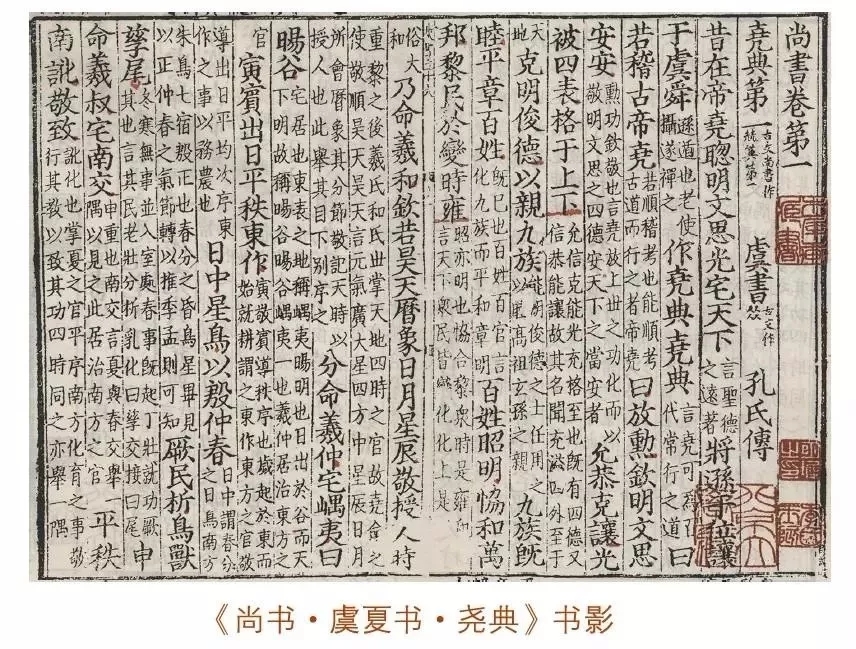 尚書卷第一
堯典第一 古文尚書作 第一 虞書 古文作 孔氏傳
昔在帝堯聰明文思光宅天下 言聖德之遠著 將孫于位讓
于虞舜 孫遁也老使攝遂禪之 作堯典堯典 言堯可為百代常行之道 曰
若稽古帝堯 若順稽考也能順考古道而行之者帝堯 曰放勳欽明文思
安安 勳功欽敬也言堯放上世之功化而以敬明文思之四德安天下之當安者 允恭克讓光
被四表格于上下 允信克能光充格至也既有四德又信恭能讓故其名聞充溢四外至于
天地 克明俊德以親九族 能明俊德之士任用之以睦高祖玄孫之親 九族既
睦平章百姓 既已也百姓百官言化九族而平和章明 百姓昭明恊和萬
邦黎民於變時雍 昭亦明也恊合黎衆時是雍和言天下衆民皆變化化上是
俗大和 乃命羲和欽若昊天曆象日月星辰敬授人時
重黎之後羲氏和氏世掌天地四時之官故堯命之使敬順昊天昊天言元氣廣大星四方中星辰日月
所會曆象其分節敬記天時以授人也此舉其目下別序之 分命羲仲宅嵎夷曰
暘谷 宅居也東表之地稱嵎夷暘明也日出於谷而天下明故稱暘谷暘谷嵎夷一也羲仲居治東方之
官 寅賓出日平秩東作 寅敬賓導秩序也歲起於東而始就耕謂之東作東方之官敬
導出日平均次序東作之事以務農也 日中星鳥以殷仲春 日中謂春分之日鳥南方
朱鳥七宿殷正也春分之昏鳥星畢見以正仲春之氣節轉以推季孟則可知 厥民析鳥獸
孳尾 冬寒無事並入室處春事既起丁壯就功厥其也言其民老壯分析乳化曰孳交接曰尾 申
命羲叔宅南交 申重也南交言夏與春交舉一隅以見之此居治南方之官 平秩
南訛敬致 訛化也掌夏之官平序南方化育之事敬行其教以致其功四時同之亦舉一隅
《尚书·虞夏书·尧典》书影